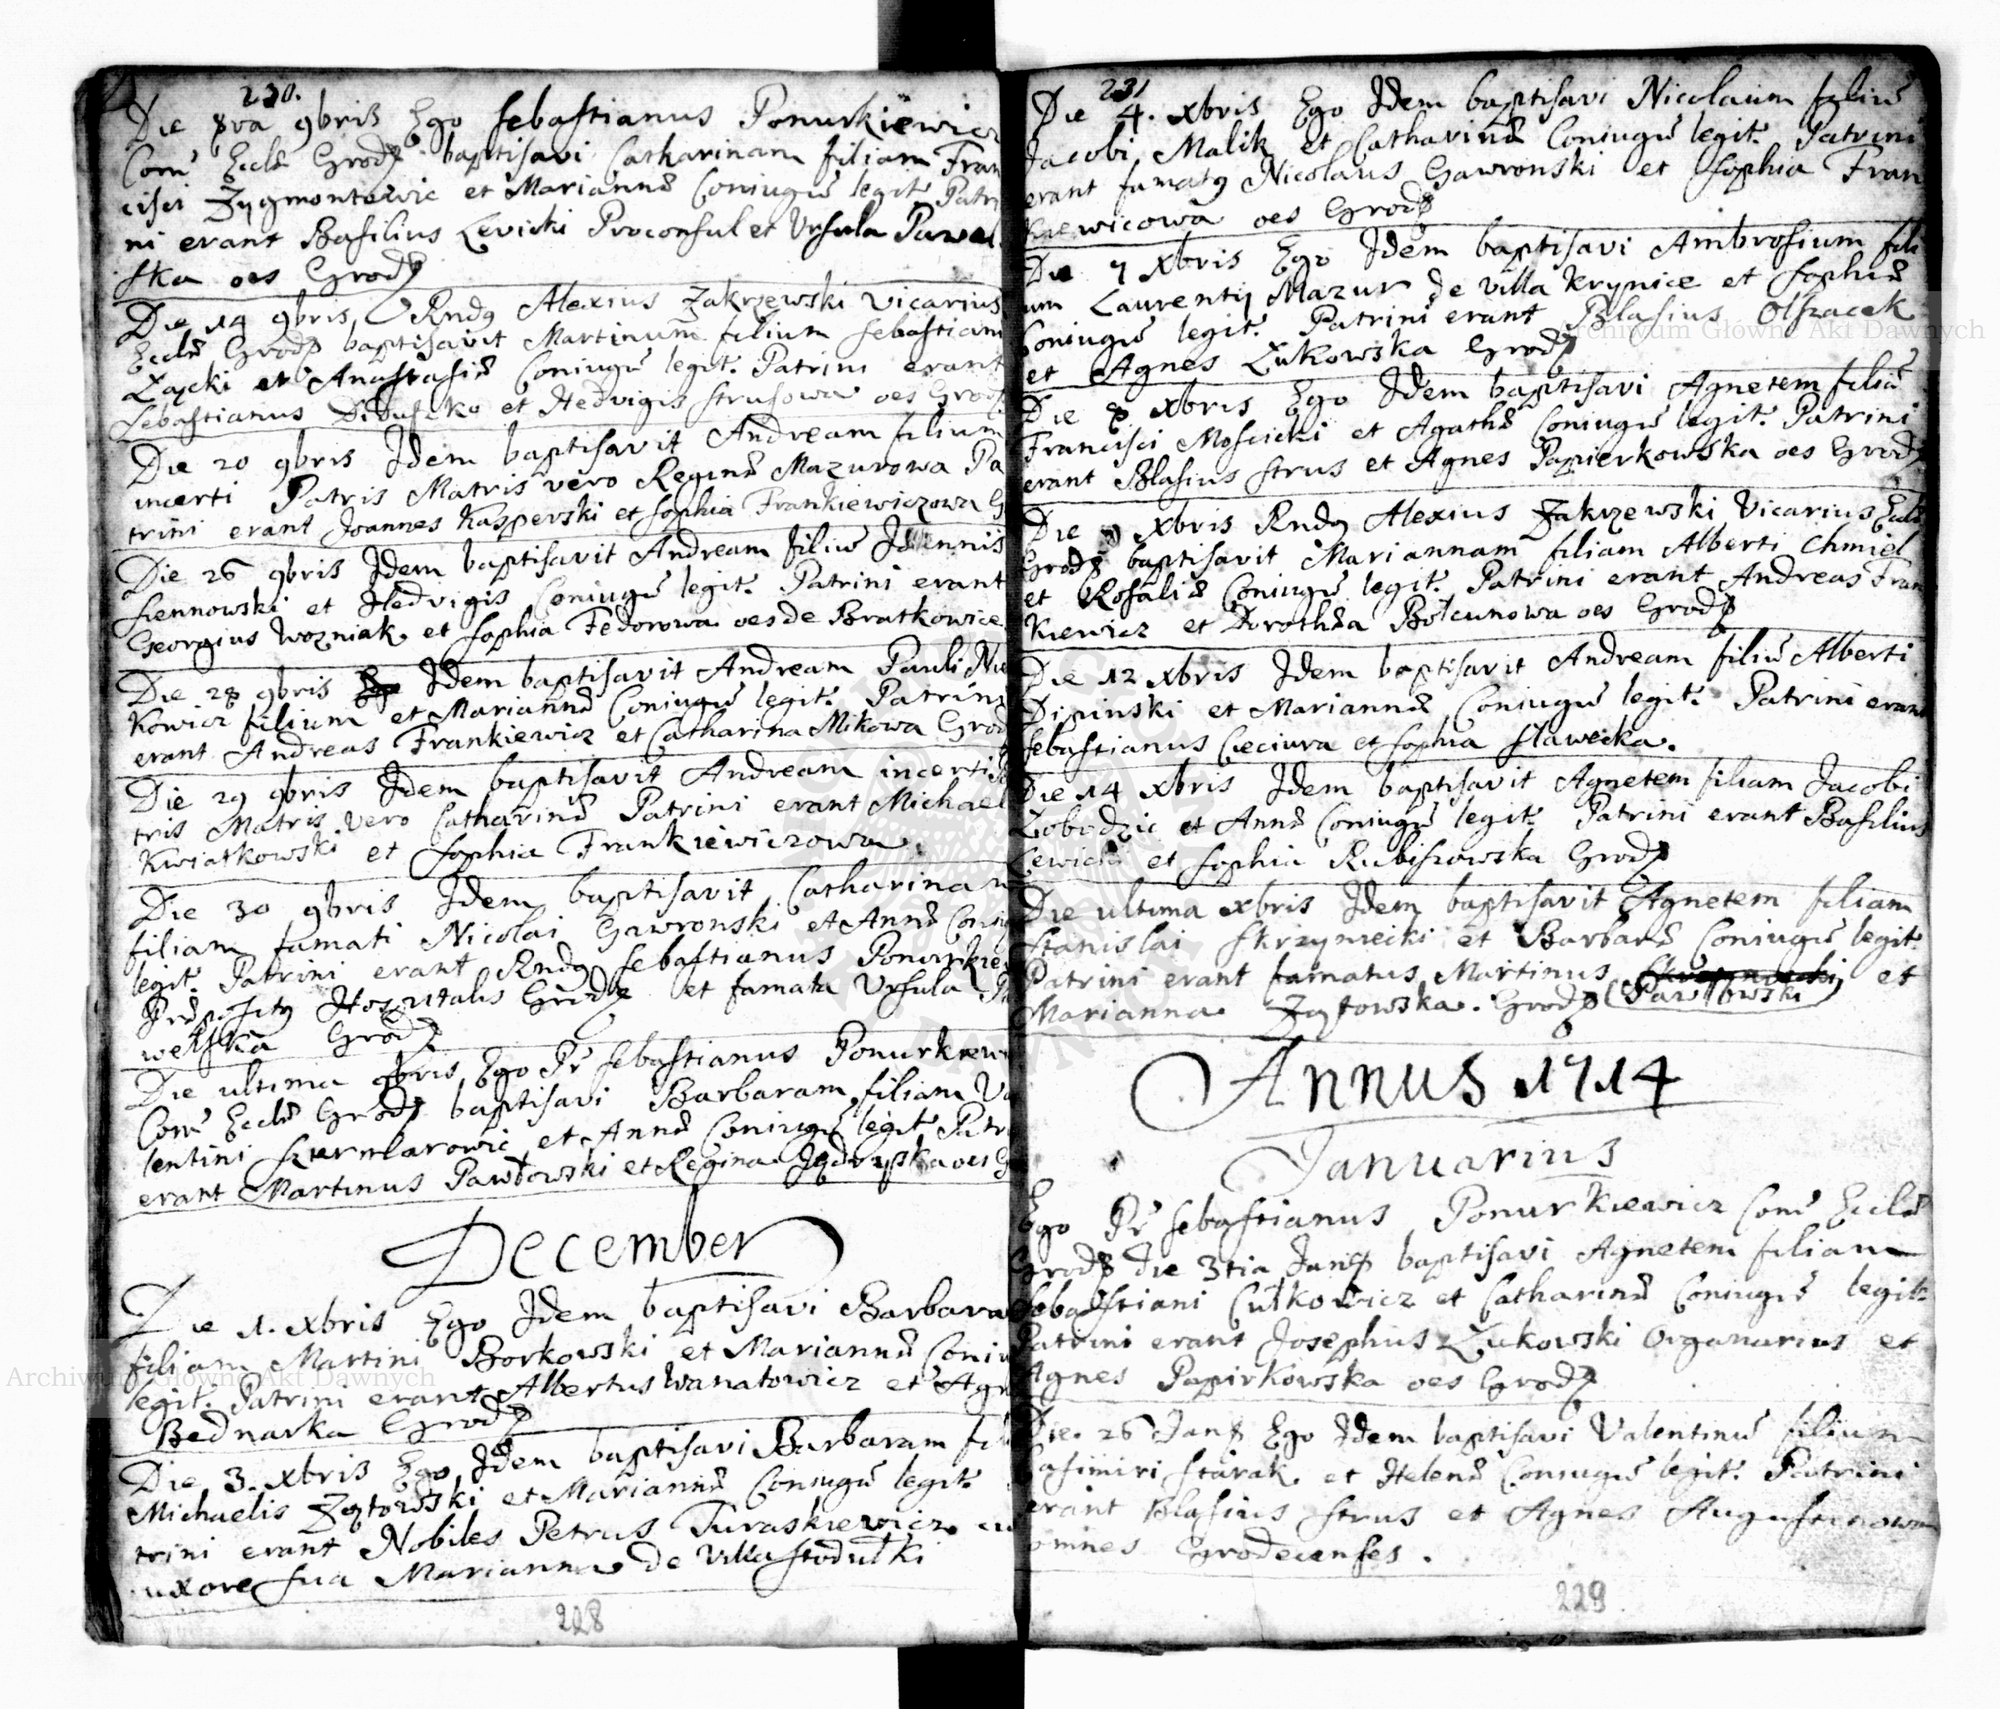 230.
Die 8va 9bris Ego Sebastianus Ponurkiewicz
Com Eccl Grod baptisavi Catharinam filiam Fran
cisci Zygmontowic et Mariannæ Coniugũ legit Patri
ni erant Basilius Levicki Proconsul et Ursula Pawel
ska oes Grod
Die 14 9bris Rndg Alexius Zakrzewski Vicarius
Eccl Grod baptisavit Martinum filium Sebastiani
Zaycki et Anastasiæ Coniugũ legit. Patrini erant
Sebastianus Diduszko et Hedvigis Strusowa oes Grod
Die 20 9bris Idem baptisavit Andream filium
incerti Patris Matris vero Reginæ Mazurowa Pa
trini erant Joannes Kasperski et Sophia Frankiewiczowa G
Die 26 9bris Idem baptisavit Andream filiũ Joannis
Siennowski et Hedvigis Coniugũ legit. Patrini erant
Georgius Wozniak et Sophia Fedorowa oes de Bratkowice
Die 28 9bris Idem baptisavit Andream Pauli
kowicz filium et Mariannæ Coniugũ legit. Patrini
erant Andreas Frankiewicz et Catharina Mikowa Grod
Die 29 9bris Idem baptisavit Andream incerti Pa
tris Matris vero Catharinæ Patrini erant Michael
Kwiatkowski et Sophia Frankiewiczowa.
Die 30 9bris Idem baptisavit Catharinam
filiam famati Nicolai Gawronski et Annæ Coniug
legit. Patrini erant Rndg Sebastianus Ponurkie
Præpositg Hospitalis Grod et famata Ursula Pa
welska Grod
Die ultima 9bris Ego Pr Sebastianus Ponurkiew
Com Eccl Grod baptisavi Barbaram filiam Va
lentini et Annæ Coniugũ legit Patri
erant Martinus Pawłowski et Regina oes G
December
Die 1. xbris Ego Idem baptisavi Barbara
filiam Martini Borkowski et Mariannæ Coniu
legit. Patrini erant Albertus Wanatowicz et Agn
Bednarka Grod
Die 3. xbris Ego Idem baptisavi Barbaram fi
Michaelis Zytowski et Mariannæ Coniugũ legit.
trini erant Nobiles Petrus Turaskiewicz cu
uxore sua Marianna de Villa Stodułki
228
231
Die 4. xbris Ego Idem baptisavi Nicolaum filiũ
Jacobi Malik et Catharinæ Coniugũ legit. Patrini
erant famatg Nicolaus Gawronski et Sophia Fran
kiewicowa oes Grod
Die 7 xbris Ego Idem baptisavi Ambrosium fili
um Laurentij Mazur de Villa Krynice et Sophiæ
Coniugũ legit. Patrini erant Blasius Olszacek
et Agnes Zukowska Grod
Die 8 xbris Ego Idem baptisavi Agnetem filiã
Francisci Moscicki et Agathæ Coniugũ legit. Patrini
erant Blasius Strus et Agnes Papierkowska oes Grod
Die xbris Rndg Alexius Zakrzewski Vicarius Eccl
Grod baptisavit Mariannam filiam Alberti Chmiel
et Rosaliæ Coniugũ legit. Patrini erant Andreas Fran
kiewicz et Dorothea Bolcunowa oes Grod
Die 12 xbris Idem baptisavit Andream filiũ Alberti
Dipinski et Mariannæ Coniugũ legit. Patrini erant
Sebastianus Cieciura et Sophia Sławecka.
Die 14 xbris Idem baptisavit Agnetem filiam Jacobi
Łobodzic et Annæ Coniugũ legit. Patrini erant Basilius
Lewicki et Sophia Rubiszowska Grod
Die ultima xbris Idem baptisavit Agnetem filiam
Stanislai Skrzyniecki et Barbaræ Coniugũ legit.
Patrini erant famatus Martinus Skrzyniecki et
Marianna Zytowska. Grod Pawłowski
Annus 1714
Januarius
Ego Pr Sebastianus Ponurkiewicz Com Eccl
Grod die 3tia Jan baptisavi Agnetem filiam
Sebastiani Cułkowicz et Catharinæ Coniugũ legit.
Patrini erant Josephus Zukowski Organarius et
Agnes Papirkowska oes Grod
Die. 26 Jan Ego Idem baptisavi Valentinũ filium
Casimiri Starak et Helenæ Coniugũ legit. Patrini
erant Blasius Strus et Agnes Augustinowa
omnes Grodecenses.
229
Archiwum Główne Akt Dawnych
Archiwum Główne Akt Dawnych